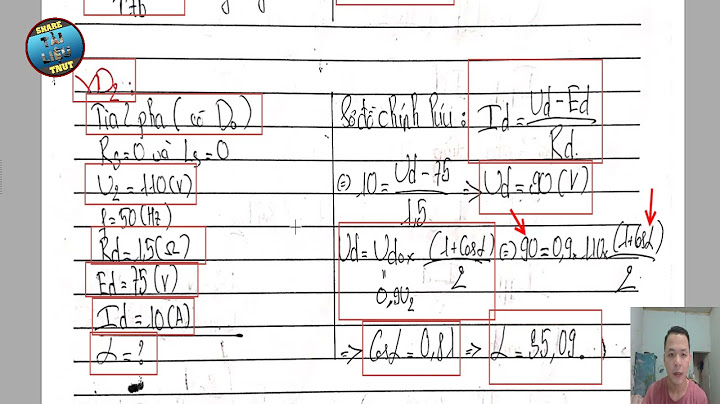 SHARE
TÀI
LIỆU
TNUT
VD2:
Tia 2 pha (có D0)
Rg=0 và Lg=0
U2=110(V)
f=50(Hz)
Rd=1,5(Ω)
Ed=75(V)
Id=10(A)
α=?
Sơ đồ chỉnh lưu: Id=(Ud-Ed)/Rd
(=) 10=(Ud-75)/1,5 => Ud=90(V)
Ud=Ud0×(1+cosα)/2 (=) 90=0,9.110.(1+cosα)/2
"
0,9U2
=> Cosα=0,81 => α=35,09°